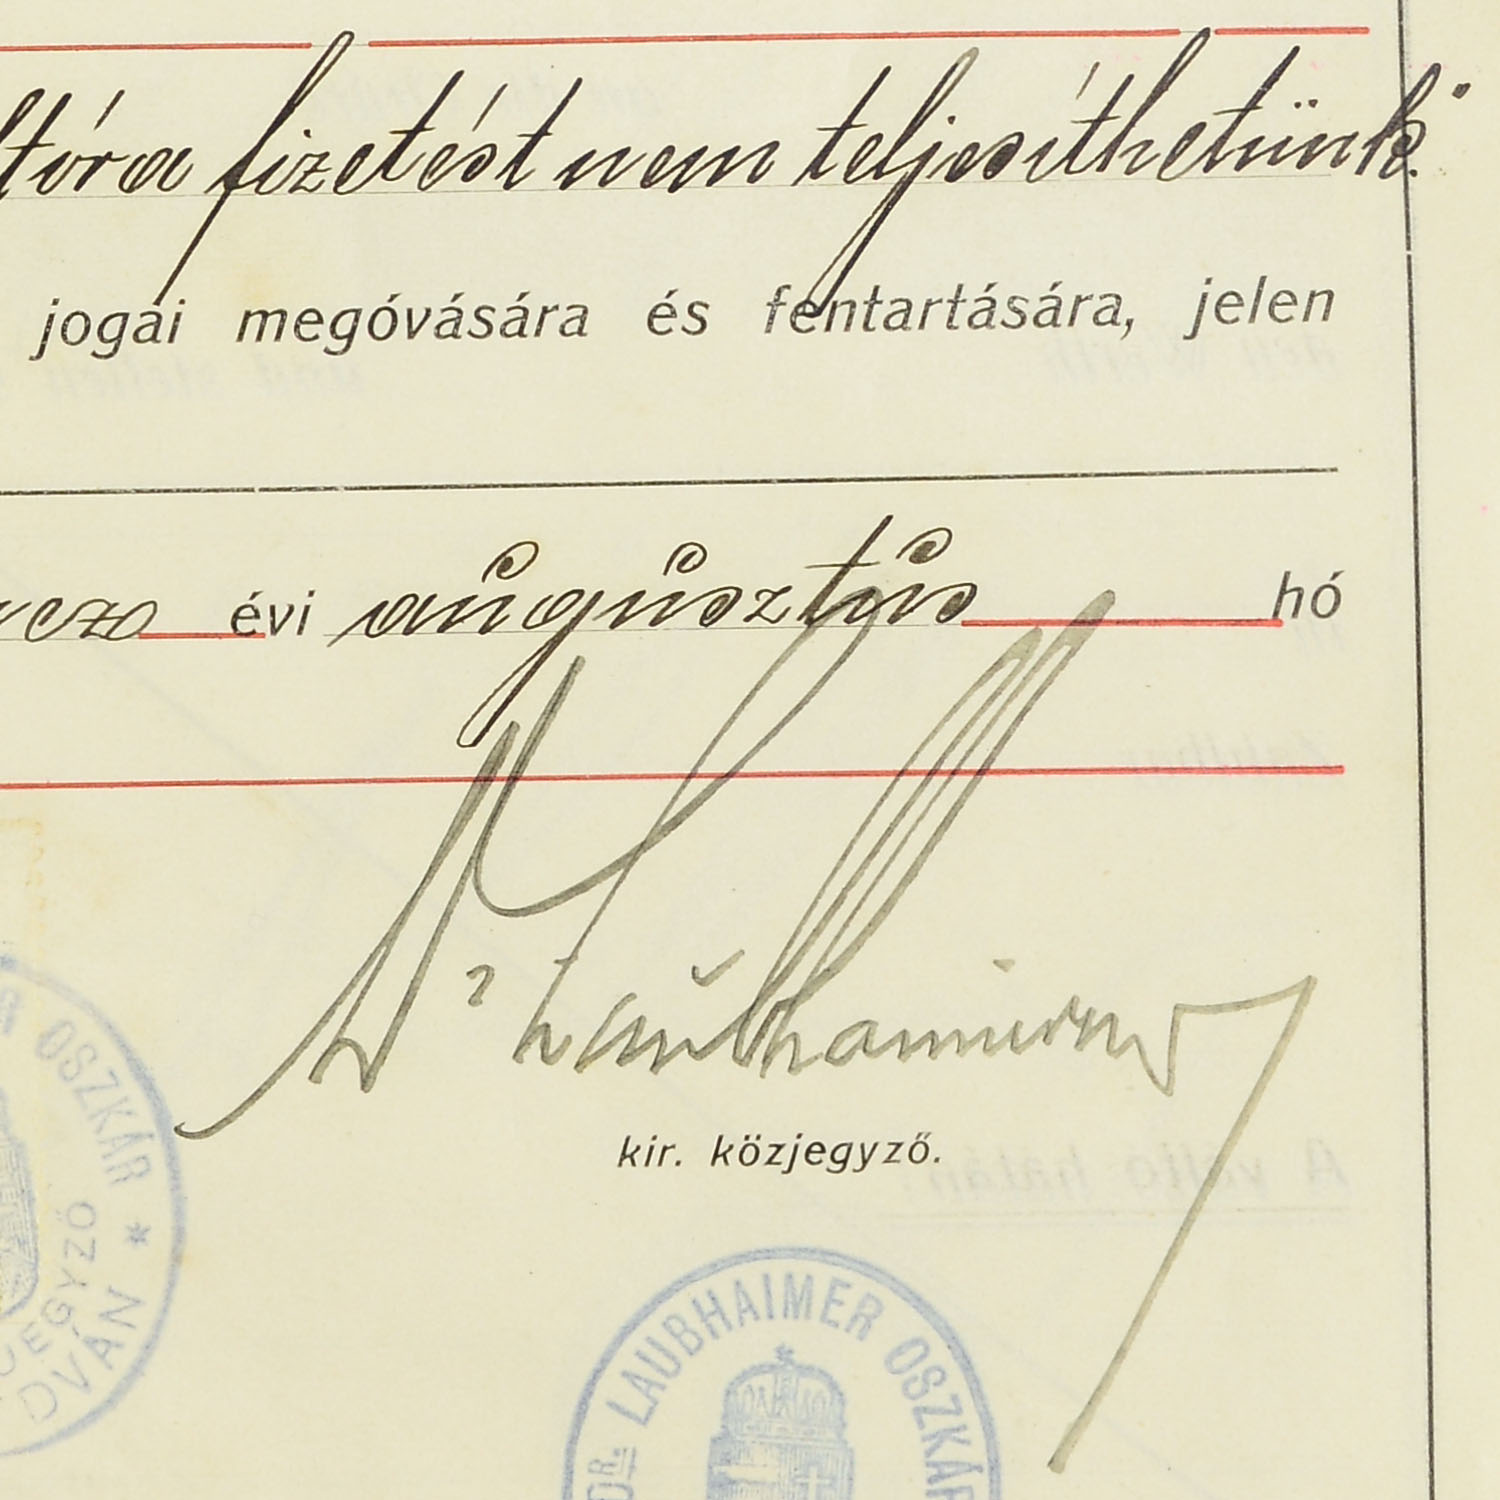 fizetést nem teljesíthetünk."
jogai megóvására és fentartására, jelen
évi augusztus hó
Dr Laubhaimer
kir. közjegyző.
OSZKÁR *
DR. LAUBHAIMER OSZKÁR